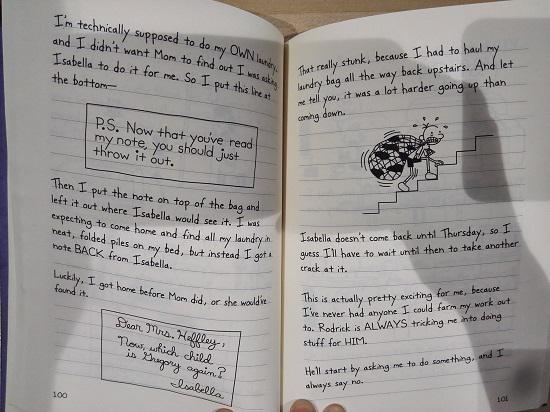 I'm technically supposed to do my OWN laundry,
and I didn't want Mom to find out I was asking
Isabella to do it for me. So I put this line at
the bottom—
P.S. Now that you've read
my note, you should just
throw it out.
Then I put the note on top of the bag and
left it out where Isabella would see it. I was
expecting to come home and find all my laundry in
neat, folded piles on my bed, but instead I got a
note BACK from Isabella.
Luckily, I got home before Mom did, or she would've
found it.
Dear Mrs. Heffley,
Now, which child
is Gregory again?
-Isabella
100
That really stunk, because I had to haul my
laundry bag all the way back upstairs. And let
me tell you, it was a lot harder going up than
coming down.
Isabella doesn't come back until Thursday, so I
guess I'll have to wait until then to take another
crack at it.
This is actually pretty exciting for me, because
I've never had anyone I could farm my work out
to. Rodrick is ALWAYS tricking me into doing
stuff for HIM.
He'll start by asking me to do something, and I
always say no.
101